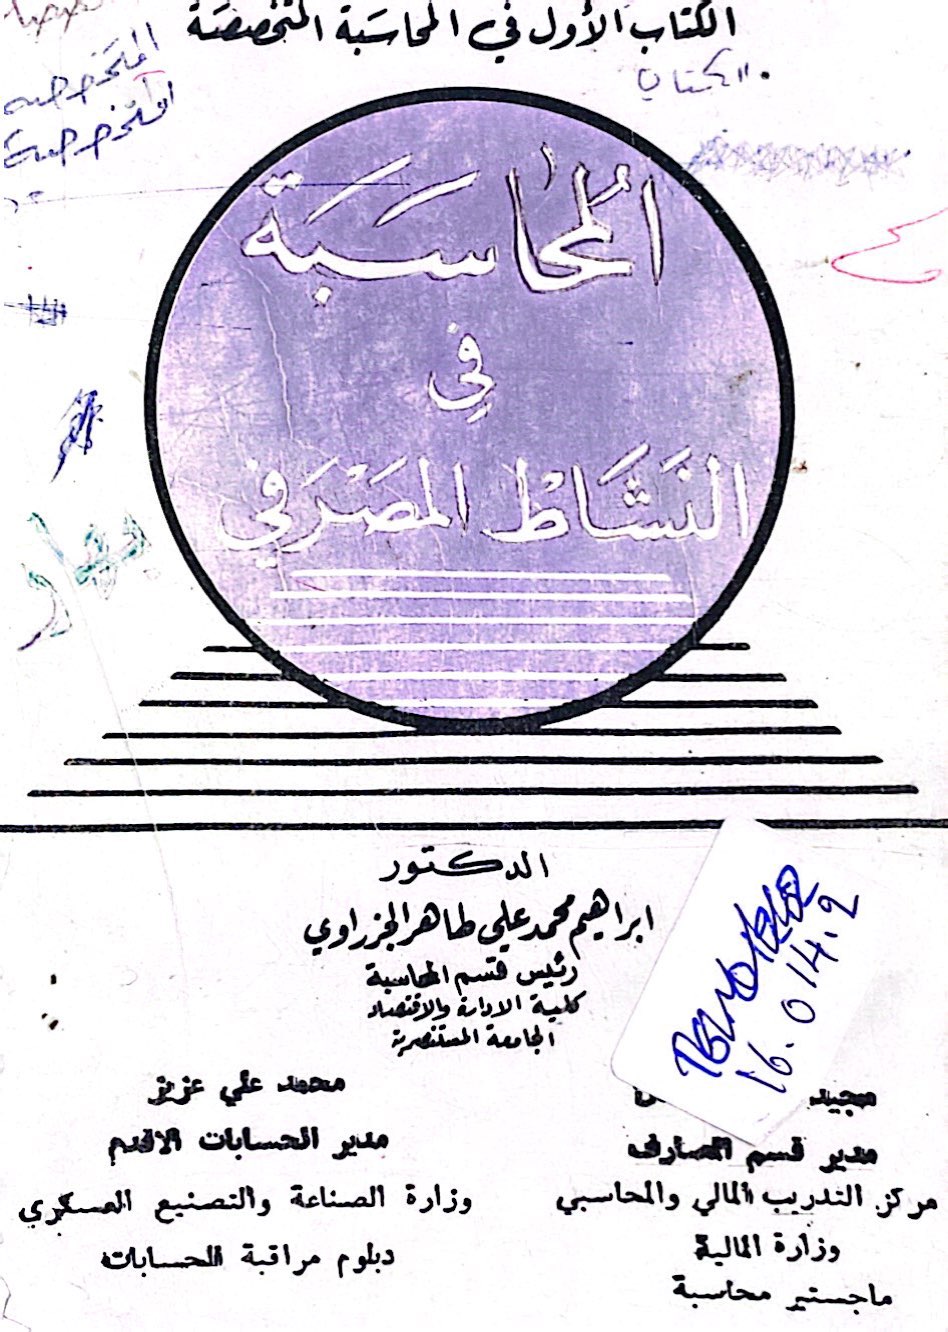 الكتاب الأول في المحاسَبة المتخصصَة
المتخصصية
المتخصصية
الكتاب
المُحَاسَبَة
فِي
النَشَاط المصْرَفي
الدكتور
ابراهيم محمد علي طاهر الجزراوي
رئيس قسم المحاسبة
كلية الادارة والاقتصاد
الجامعة المستنصرية
16.014.2
مجيد
مدير قسم المصارف
مركز التدريب المالي والمحاسبي
وزارة المالية
ماجستير محاسبة
محمد علي عزيز
مدير الحسابات الاقدم
وزارة الصناعة والتصنيع العسكري
دبلوم مراقبة الحسابات